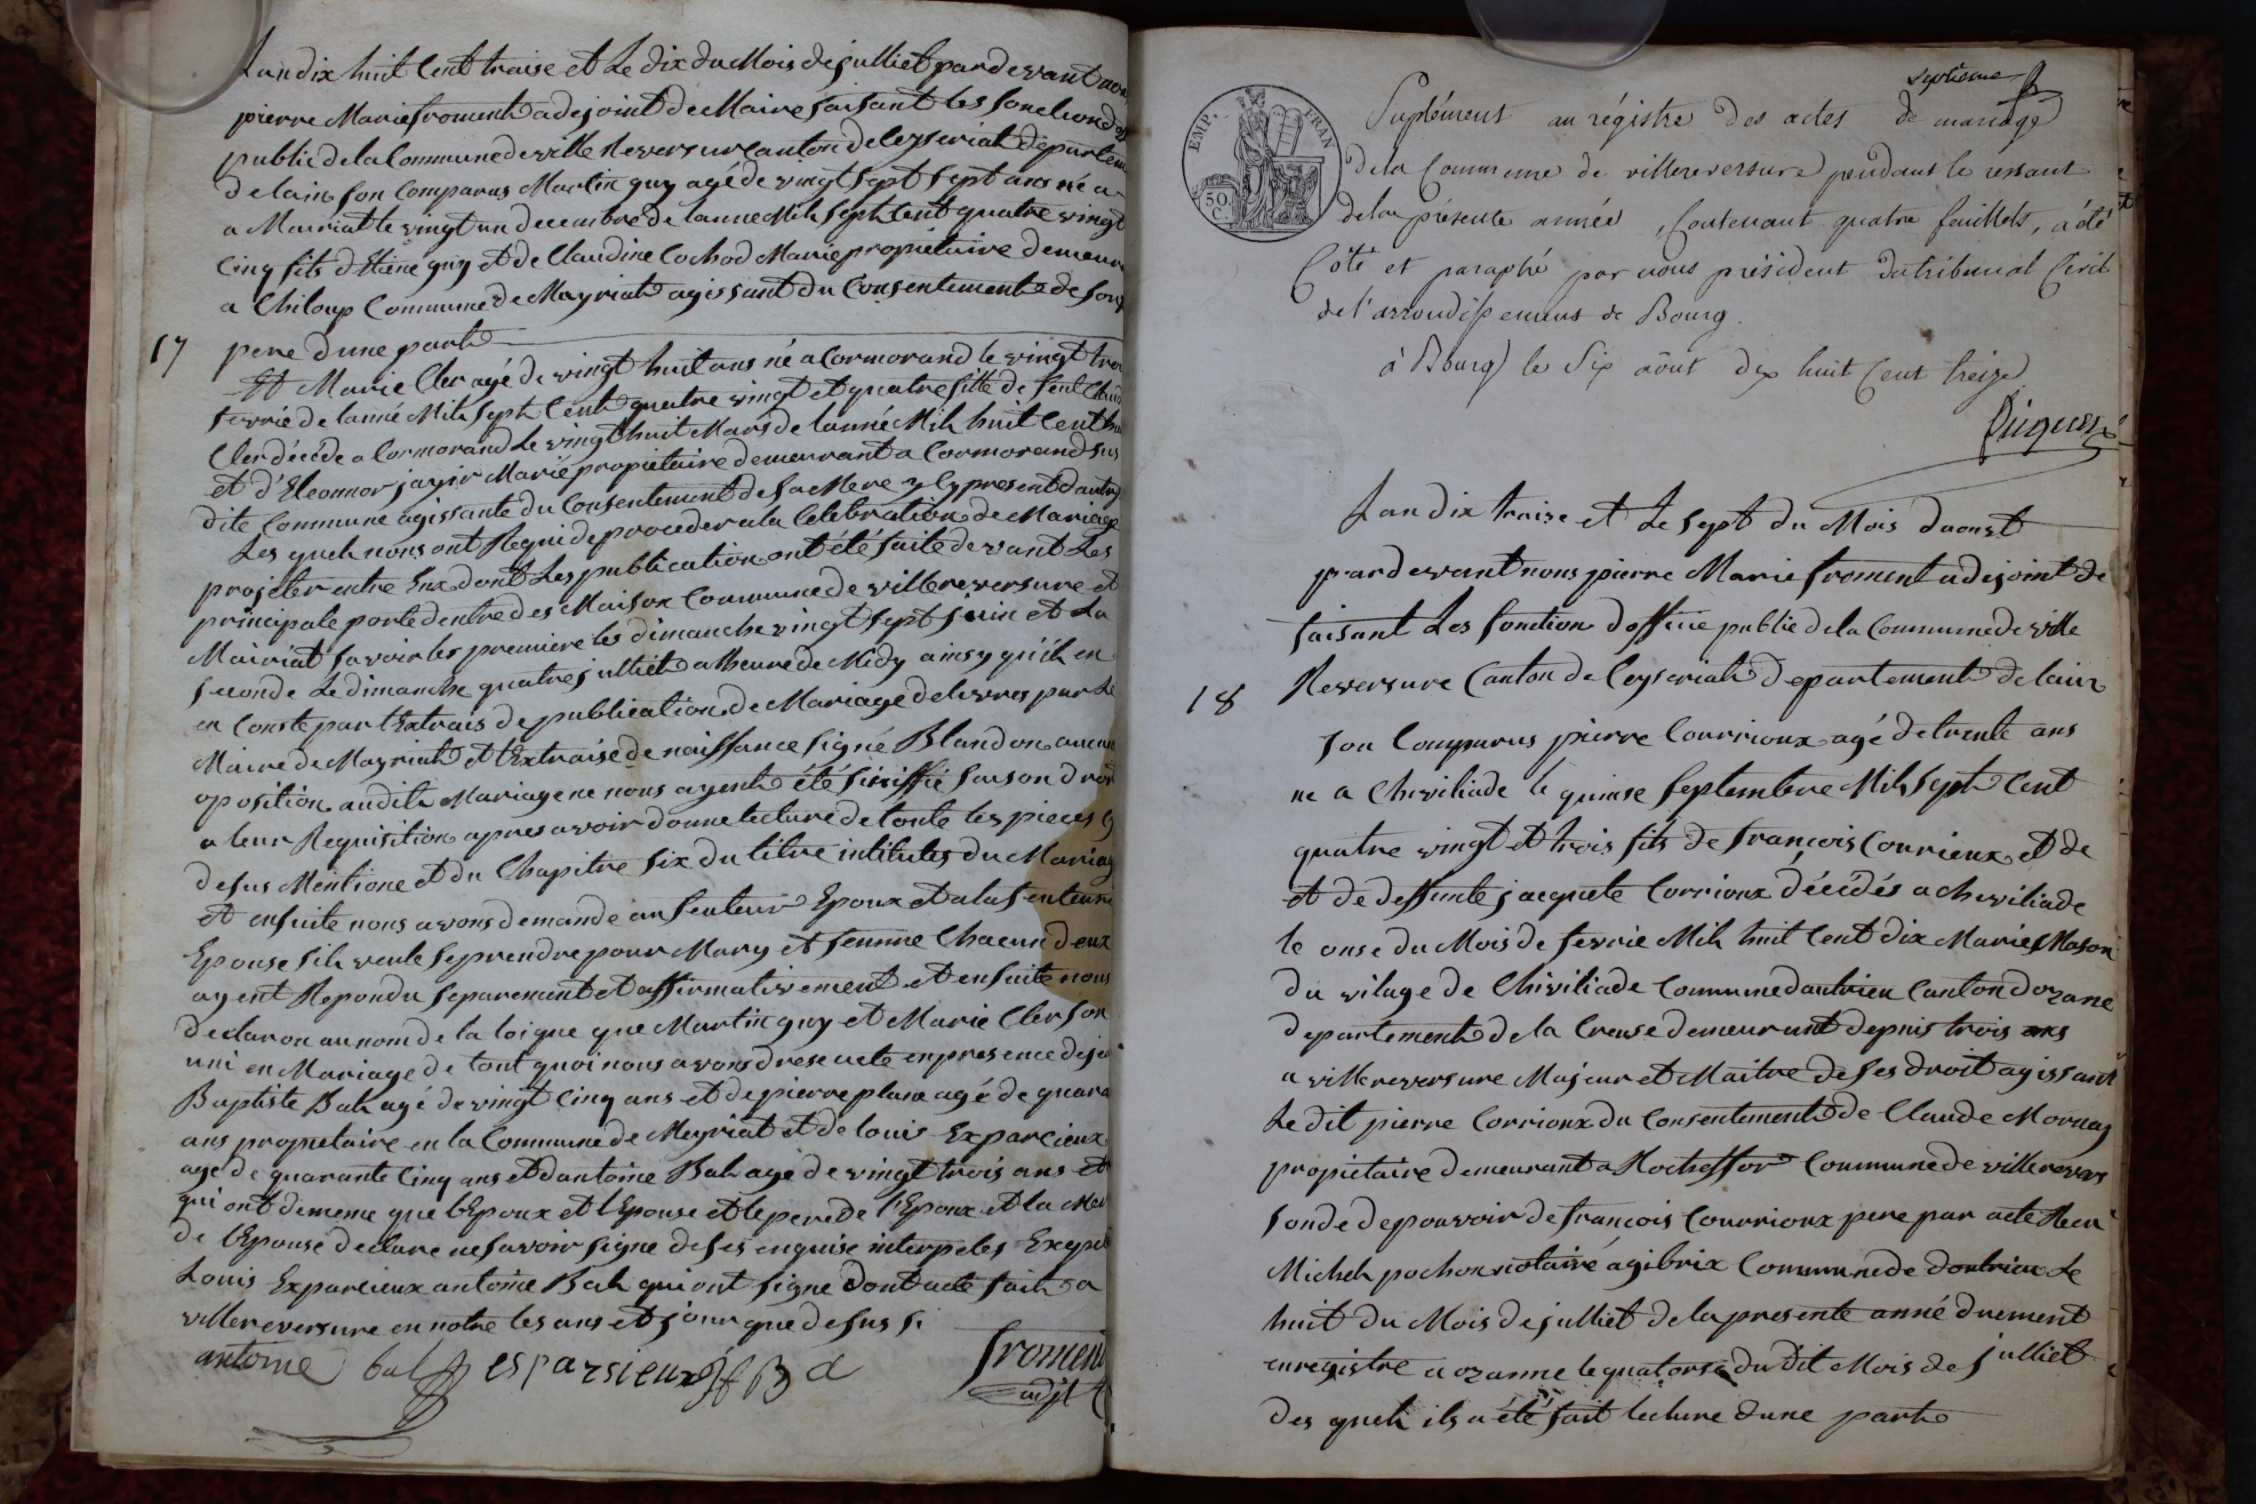 Lan dix huit Cent traise et Le dix du Mois de julliet pardevant nous
pierre Marie froment adejoint de Maire faisant les fonction d
public de la Commune de ville Reversure Canton de Ceyseriat departem
de lain son Comparus Martin guy agé de vingt sept sept ans né a
a Mairiat le vingt un decembre de lanne Mih Sept Cent quatre vingt
Cinq fits d Etiene guy et de Claudine Cochod Marie propiétaire demeur
a Chiloup Commune de Mayriat agissant du Consentement de Son
17
pere dune part
Et Marie Cler agé de vingt huit ans né a Cormorand le vingt trois
fevrié de lanné Mih Sept Cent quatre vingt et quatre fille de feut Claud
Cler décéde a Cormorand Le vingt huit Mars de lanné Mih huit Cent
et d'Eleonnor jayir Marié propiétaire demeurant a Cormorand Sus
dite Commune agissante du Consentement de Sa Mere y Cy present dautre
Les queh nous ont Requi de proceder a la Celebration de Mariage
projeter entre Eux dont Les publication ont été faite devant Les
principale porte dentre des Maison Commune de villereversure et
Mairiat Savoir les premiere les dimanche vingt Sept juin et La
Seconde Le dimanche quatre julliet a lheure de Midy ainsy quih en
en Conste par l Extrais de publication de Mariage delivres par Le
Maire de Mayriat et l Extraise de naissance Signé Blandon aucun
oposition audite Mariage ne nous ayent été Siniffié faison droi
a leur Requisition apres avoir donne lecture de toute les pieces Cy
desus Mentione et du Chapitre Six du titre intitules du Mariag
et ensuite nous avons demandé au feuteur Epoux et a la feuteure
Epouse Sih veule Se prendre pour Mary et femme Chacun deux
ayent Repondu Separemant et affirmativement et ensuite nous
declaron au nom de la loi que que Martin guy et Marie Cler Son
uni en Mariage de tout quoi nous avons drese acte en presence de je
Baptiste Bah agé de vingt Cinq ans et de pierre plane agé de quara
ans propietaire en la Commune de Meyriat et de louis Exparcieux
agé de quarante Cinq ans et dantoine Bah agé de vingt trois ans et
qui ont dememe que l Epoux et l Epouse et le pere de l'Epoux et la Mer
de l Epouse declare ne Savoir Signe de Ses enquise interpeles Exepté
Louis Exparcieux antoine Bah qui ont Signe Dont acte fait a
villereversure en notre les ans et jour que desus Si
antoine bal esparsieux B froment
adjt
Septieme
EMP. FRAN
50. C.
Suplément au régistre des actes de mariage
de la Commune de villereversure pendant le restant
de la présente année, Contenant quatre feuillets, a été
Coté et paraphé par nous président du tribunal Civil
de l'arrondissement de Bourg.
à Bourg le Six août dix huit Cent treize
Lan dix traise et Le Sept du Mois daoust
pardevant nous pierre Marie froment adejoint de
faisant Les fonction doffice public de la Commune de ville
18
Reversure Canton de Ceyseriat departement de lain
Son Comparus pierre Courrioux agé de trente ans
ne a Chiviliade le quinse Septembre Mih Sept Cent
quatre vingt et trois fits de francois Courrieux et de
et de deffunte jacquete Corrioux décédés a cheviliade
le onse du Mois de fevrie Mih huit Cent dix Marie Mason
du vilage de Chiviliade Commune dautrieu Canton dozane
departement de la Creuse demeurant depuis trois ans
a villereversure Majeur et Maitre de Ses droit agissant
Le dit pierre Corrioux du Consentement de Claude Mornay
propietaire demeurant a Rocheffor Commune de villerevers
fonde de pouvoir de francois Courrioux pere par acte Recu
Micheh pochon notaire a gibrix Commune de doutrieu Le
huit du Mois de julliet de la presente anné duement
enregistre a ozanne le quatorse du dit Mois de julliet
des queh ils a été fait lecture dune part